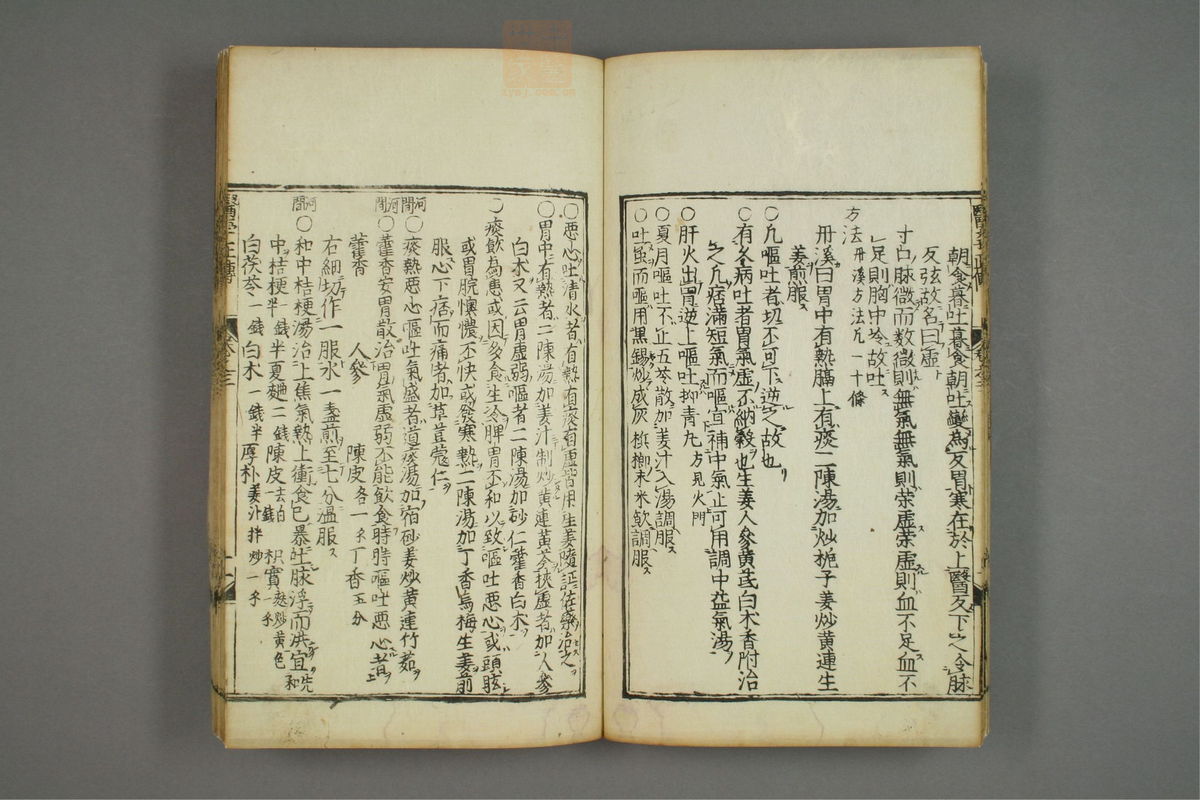 朝食暮吐暮食朝吐變為反胃寒在於上醫反下之令脉
反弦故名曰虛
寸口脉微而數微則無氣無氣則榮虛榮虛則血不足血不
足則胸中冷故吐
方法丹溪方法凡一十條
丹溪曰胃中有熱膈上有痰二陳湯加炒梔子姜炒黃連生
姜煎服
○凡嘔吐者切不可下逆之故也
○有久病吐者胃氣虛不納穀也生姜人參黃芪白朮香附治
之凡痞滿短氣而嘔宜補中氣止可用調中益氣湯
○肝火出胃逆上嘔吐抑青丸方見火門
○夏月嘔吐不止五苓散加姜汁入湯調服
○吐蚘而嘔用黑錫炒成灰梹榔末米飲調服
○惡心吐清水者有熱有痰有虛皆用生姜隨証佐藥治之
○胃中有熱者二陳湯加姜汁制炒黃連黃芩挾虛者加人參
白朮又云胃虛弱嘔者二陳湯加砂仁藿香白朮
○痰飲為患或因多食生冷脾胃不和以致嘔吐惡心或頭眩
或胃脘懊憹不快或發寒熱二陳湯加丁香烏梅生姜煎
服心下痞而痛者加草荳蔻仁
河間○痰熱惡心嘔吐氣盛者道痰湯加宿砂姜炒黃連竹茹
河間○藿香安胃散治胃氣虛弱不能飲食時時嘔吐惡心
藿香 人參 陳皮各一 丁香五分
右細切作一服水一盞煎至七分溫服
河間○和中桔梗湯治上焦氣熱上衝食已暴吐脉浮而洪宜先和
中桔梗一錢半半夏麯二錢陳皮去白一錢枳實麩炒黃色一
白茯苓一錢白朮一錢半厚朴姜汁拌炒一
醫學正傳 卷之三